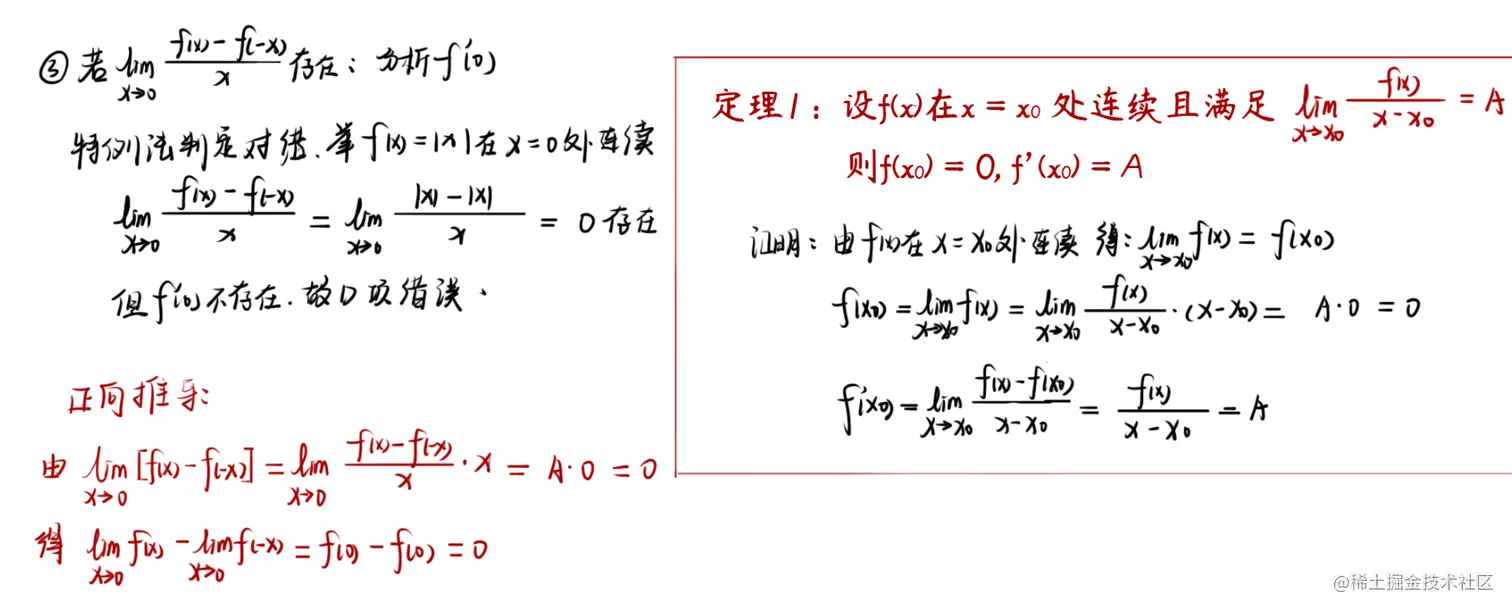 ③ 若 lim_{x→0} (f(x)-f(-x))/x 存在: 分析f'(0)
特例法判定对错. 举f(x)=|x|在x=0处连续
lim_{x→0} (f(x)-f(-x))/x = lim_{x→0} (|x|-|x|)/x = 0 存在
但f'(0)不存在. 故D项错误.
正向推导:
由 lim_{x→0} [f(x)-f(-x)] = lim_{x→0} (f(x)-f(-x))/x · x = A·0 = 0
得 lim_{x→0} f(x) - lim_{x→0} f(-x) = f(0) - f(0) = 0
定理1: 设f(x)在x = x₀ 处连续且满足 lim_{x→x₀} f(x)/(x-x₀) = A
则f(x₀) = 0, f'(x₀) = A
证明: 由f(x)在x=x₀处连续 得: lim_{x→x₀} f(x) = f(x₀)
f(x₀) = lim_{x→x₀} f(x) = lim_{x→x₀} f(x)/(x-x₀) · (x-x₀) = A·0 = 0
f'(x₀) = lim_{x→x₀} (f(x)-f(x₀))/(x-x₀) = f(x)/(x-x₀) = A
@稀土掘金技术社区